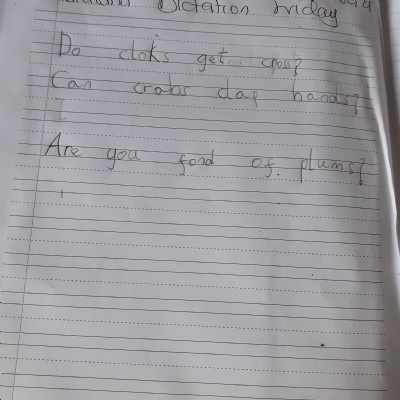 Dictation Friday
Do cloks get cross?
Can crabs clap hands?
Are you fond of plums?